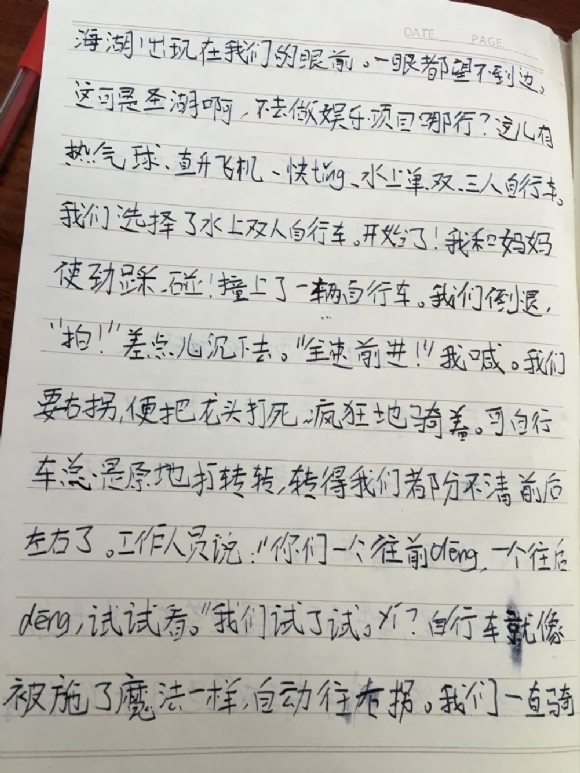 DATE PAGE
海湖!出现在我们的眼前。一眼都望不到边,
这可是圣湖啊,不去做娱乐项目哪行?这儿有
热气球、直升飞机、快tǐng、水上单、双、三人自行车。
我们选择了水上双人自行车。开始了!我和妈妈
使劲踩,碰!撞上了一辆自行车。我们倒退,
"拍!"差点儿沉下去。"全速前进!"我喊。我们
要右拐,便把龙头打死,疯狂地骑着。可自行
车总是原地打转转,转得我们都分不清前后
左右了。工作人员说:"你们一个往前dēng,一个往后
dēng,试试看。"我们试了试。yí?自行车就像
被施了魔法一样,自动往右拐。我们一直骑